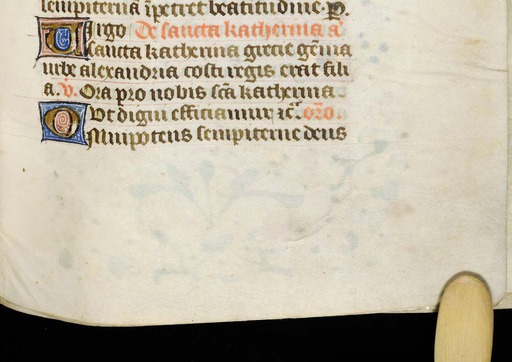 sempiterna īpetret beatitudine. P.
Virgo De sancta katherina añ
sancta katherina grecie gēma
urbe alexandria costi regis erat fili
a. v. Ora pro nobis scā katherina
Vt digni efficiamur ic̄. orō.
Omnipotens sempiterne deus